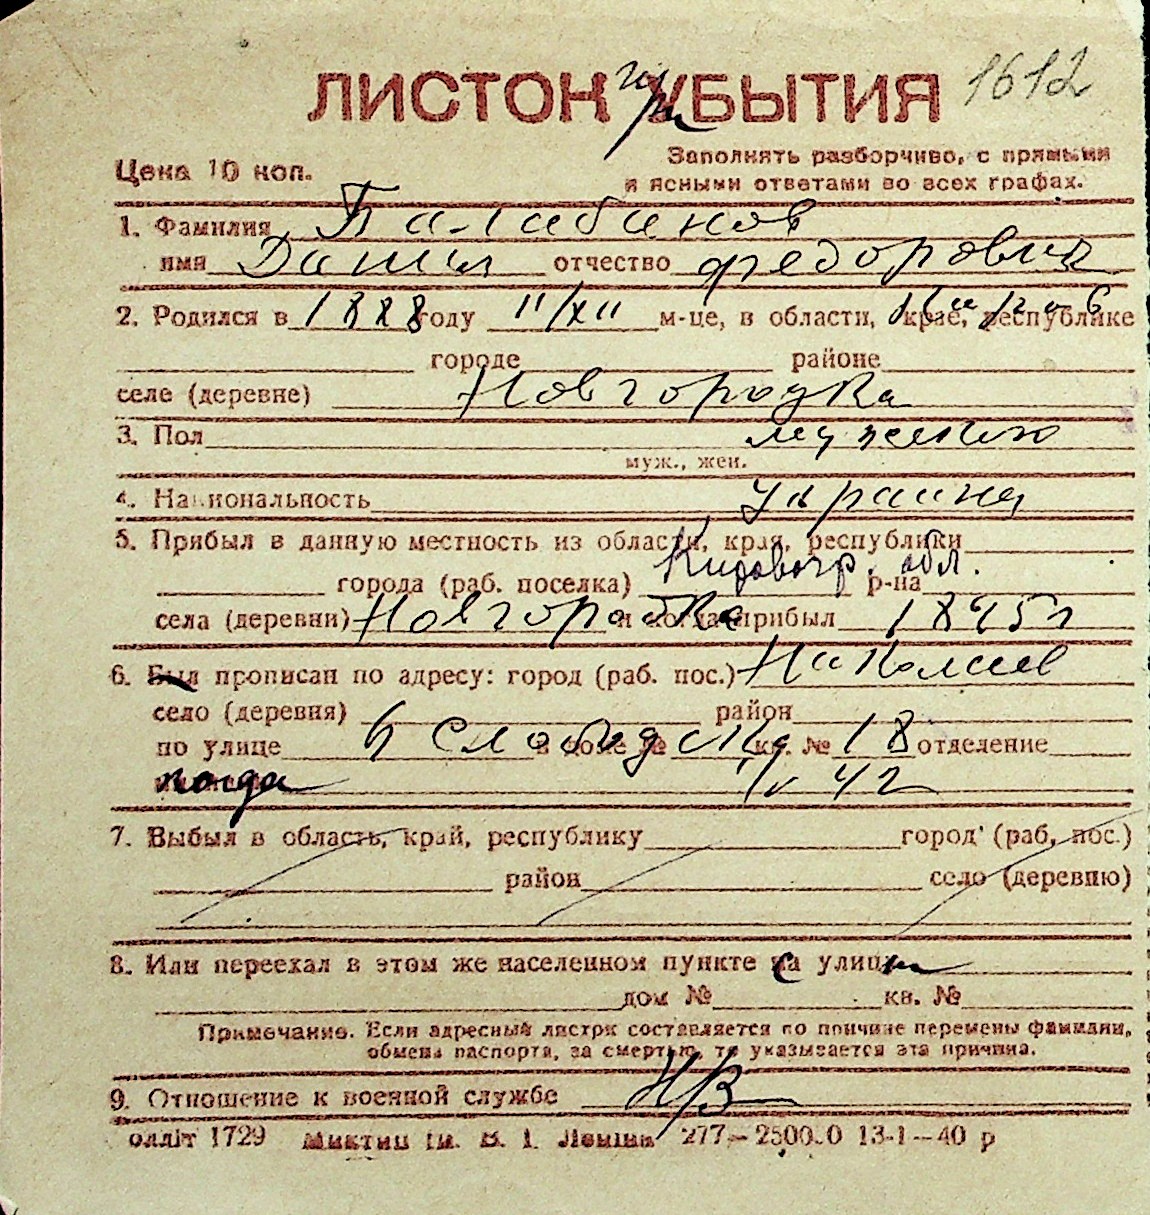 ЛИСТОК УБЫТИЯ
при
1612
Цена 10 коп.
Заполнять разборчиво, с прямыми
и ясными ответами во всех графах.
1. Фамилия Балабанов
имя Данил отчество Федорович
2. Родился в 1888 году 11/XII м-це, в области, крае, республике
городе районе
селе (деревне) Новгородка
3. Пол мужского
муж., жен.
4. Национальность украинец
5. Прибыл в данную местность из области, края, республики
города (раб. поселка) Кировогр. обл. р-на
села (деревни) Новгородка и когда прибыл 1895г
6. Был прописан по адресу: город (раб. пос.) Николаев
село (деревня) район
по улице 6 Слободская кв. № 18 отделение
когда 42
7. Выбыл в область, край, республику город (раб. пос.)
район село (деревню)
8. Или переехал в этом же населенном пункте с улицы
дом № кв. №
Примечание. Если адресный листок составляется по причине перемены фамилии,
обмена паспорта, за смертью, то указывается эта причина.
9. Отношение к военной службе Н/В
олліт 1729 277—2500.0 13-1—40 р